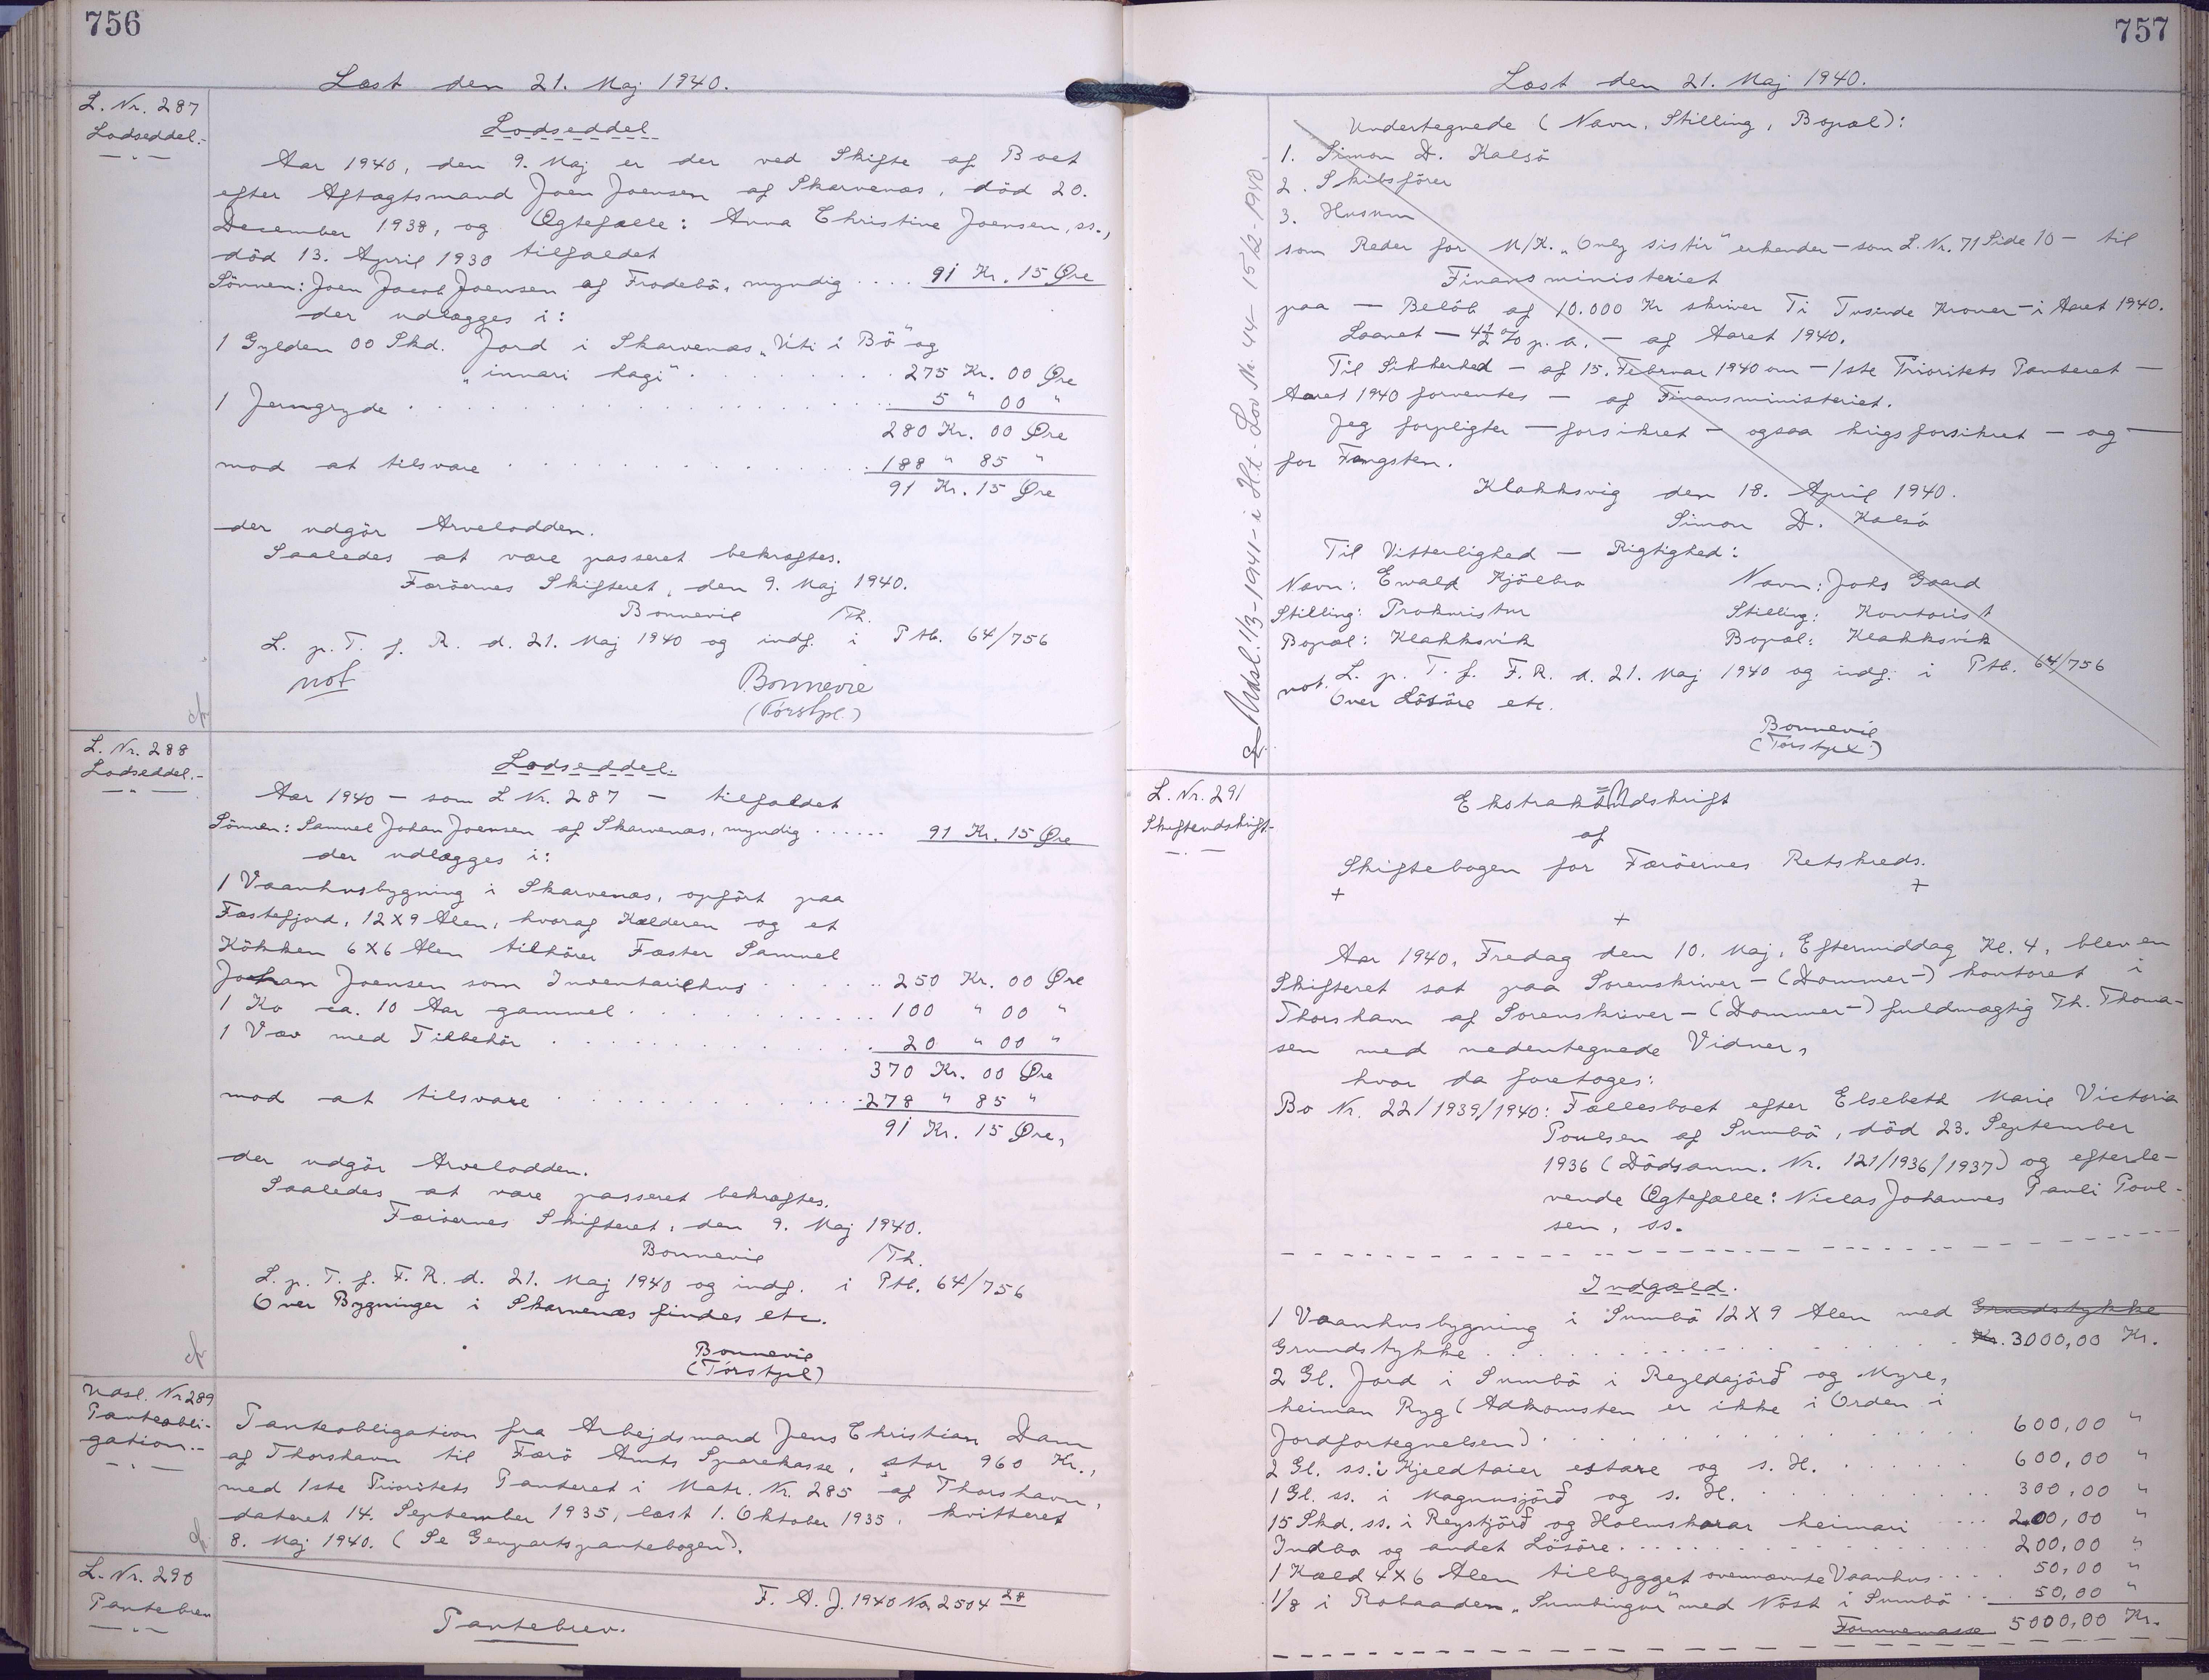 756
Læst den 21. Maj 1940.
L. Nr. 287
Lodseddel.-
Lodseddel
Aar 1940, den 9. Maj er der ved Skifte af Boet
efter Aftægtsmand Joen Joensen af Skarvenæs, död 20.
December 1938, og Ægtefælle: Anna Christine Joensen, ss.,
död 13. April 1930 tilfaldet
Sönnen: Joen Jacob Joensen af Frodebö, myndig .... 91 Kr. 15 Øre
der udlægges i:
1 Gylden 00 Skd. Jord i Skarvenæs „Uti i Bö" og
„innari hagi" . . . . . . . . 275 Kr. 00 Øre
1 Jerngryde . . . . . . . . 5 " 00 "
280 Kr. 00 Øre
mod at tilsvare . . . . . . . . 188 " 85 "
91 Kr. 15 Øre
der udgör Arvelodden.
Saaledes at være passeret bekræftes.
Færöernes Skifteret, den 9. Maj 1940.
Bonnevie /Th.
L. p. T. f. R. d. 21. Maj 1940 og indf. i Ptb. 64/756
not
Bonnevie
(Tórstpl.)
L. Nr. 288
Lodseddel.-
Lodseddel.
Aar 1940 - som L Nr. 287 - tilfaldet
Sönnen: Samuel Johan Joensen af Skarvenæs, myndig ...... 91 Kr. 15 Øre
der udlægges i:
1 Vaanhusbygning i Skarvenæs, opfört paa
Fæstefjord, 12X9 Alen, hvoraf Kælderen og et
Kökken 6X6 Alen tilhörer Fæster Samuel
Johan Joensen som Inventariehus . . . . . . 250 Kr. 00 Øre
1 Ko ca. 10 Aar gammel . . . . . . . . 100 " 00 "
1 Væv med Tilbehör . . . . . . . . 20 " 00 "
370 Kr. 00 Øre
mod at tilsvare . . . . . . . . 278 " 85 "
91 Kr. 15 Øre,
der udgör Arvelodden.
Saaledes at være passeret bekræftes.
Færöernes Skifteret, den 9. Maj 1940.
Bonnevie /Th.
L. p. T. f. F. R. d. 21. Maj 1940 og indf. i Ptb. 64/756
Over Bygninger i Skarvenæs findes etc.
Bonnevie
(Tórstpl)
Udsl. Nr 289
Panteobli-
gation.-
Panteobligation fra Arbejdsmand Jens Christian Dam
af Thorshavn til Færö Amts Sparekasse, stor 960 Kr.,
med 1ste Prioritets Panteret i Matr. Nr. 285 af Thorshavn,
dateret 14. September 1935, læst 1. Oktober 1935, kvitteret
8. Maj 1940. (Se Genpartspantebogen).
L. Nr. 290
Pantebrev
F. A. J. 1940 No. 2504 28
Pantebrev.
757
Læst den 21. Maj 1940.
Undertegnede (Navn, Stilling, Bopæl):
1. Simon D. Kalsö
2. Skibsförer
3. Husum
som Reder for M/K. „Only sistir" erkender - som L. Nr. 71 Side 10 - til
Finansministeriet
paa - Belöb af 10.000 Kr skriver Ti Tusinde Kroner - i Aaret 1940.
Laanet - 4½ % p. a. - af Aaret 1940.
Til Sikkerhed - af 15. Februar 1940 om - 1ste Prioritets Panteret -
Aaret 1940 forventes - af Finansministeriet.
Jeg forpligter - forsikret - ogsaa krigsforsikret - og -
for Fangsten.
Klakksvig den 18. April 1940.
Simon D. Kalsö
Til Vitterlighed - Rigtighed:
Navn: Ewald Kjölbro Navn: Johs Gaard
Stilling: Prokurist Stilling: Kontorist
Bopæl: Klakksvik Bopæl: Klakksvik
not. L. p. T. f. F. R. d. 21. Maj 1940 og indf. i Ptb. 64/756
Over Lösöre etc.
Bonnevie
(Tórstpl)
Udsl. 1/3-1941 - i H.t. Lov Nr. 44 - 15/2-1940.
L. Nr. 291
Skifteudskrift-
Ekstraktudskrift
af
Skiftebogen for Færöernes Retskreds.
+ + +
Aar 1940, Fredag den 10. Maj, Eftermiddag Kl. 4, blev en
Skifteret sat paa Sorenskriver- (Dommer-) kontoret i
Thorshavn af Sorenskriver- (Dommer-) fuldmægtig Th. Thoma-
sen med nedentegnede Vidner,
hvor da foretoges:
Bo Nr. 22/1939/1940: Fællesboet efter Elsebeth Marie Victoria
Poulsen af Sumbö, död 23. September
1936 (Dödsanm. Nr. 121/1936/1937) og efterle-
vende Ægtefælle: Niclas Johannes Pauli Poul-
sen, ss.
Indgæld.
1 Vaanhusbygning i Sumbö 12X9 Alen med Grundstykke
Grundstykke . . . . . . . . Kr. 3000,00 Kr.
2 Gl. Jord i Sumbö i Regldajörð og Myre,
heiman Ryg (Adkomsten er ikke i Orden i
Jordfortegnelsen) . . . . . . . . 600,00 "
2 Gl. ss. i Kjeldtaier estare og s. H. . . . . . . 600,00 "
1 Gl. ss. i Magnusjörð og s. H. . . . . . . . 300,00 "
15 Skd. ss. i Reystjörð og Holmskorar heimari ... 200,00 "
Indbo og andet Lösöre . . . . . . . . 200,00 "
1 Kæld 4X6 Alen tilbygget ovennævnte Vaanhus .... 50,00 "
1/8 i Robaaden „Sumbingur" med Nöst i Sumbö ... 50,00 "
Formuemasse 5000,00 Kr.